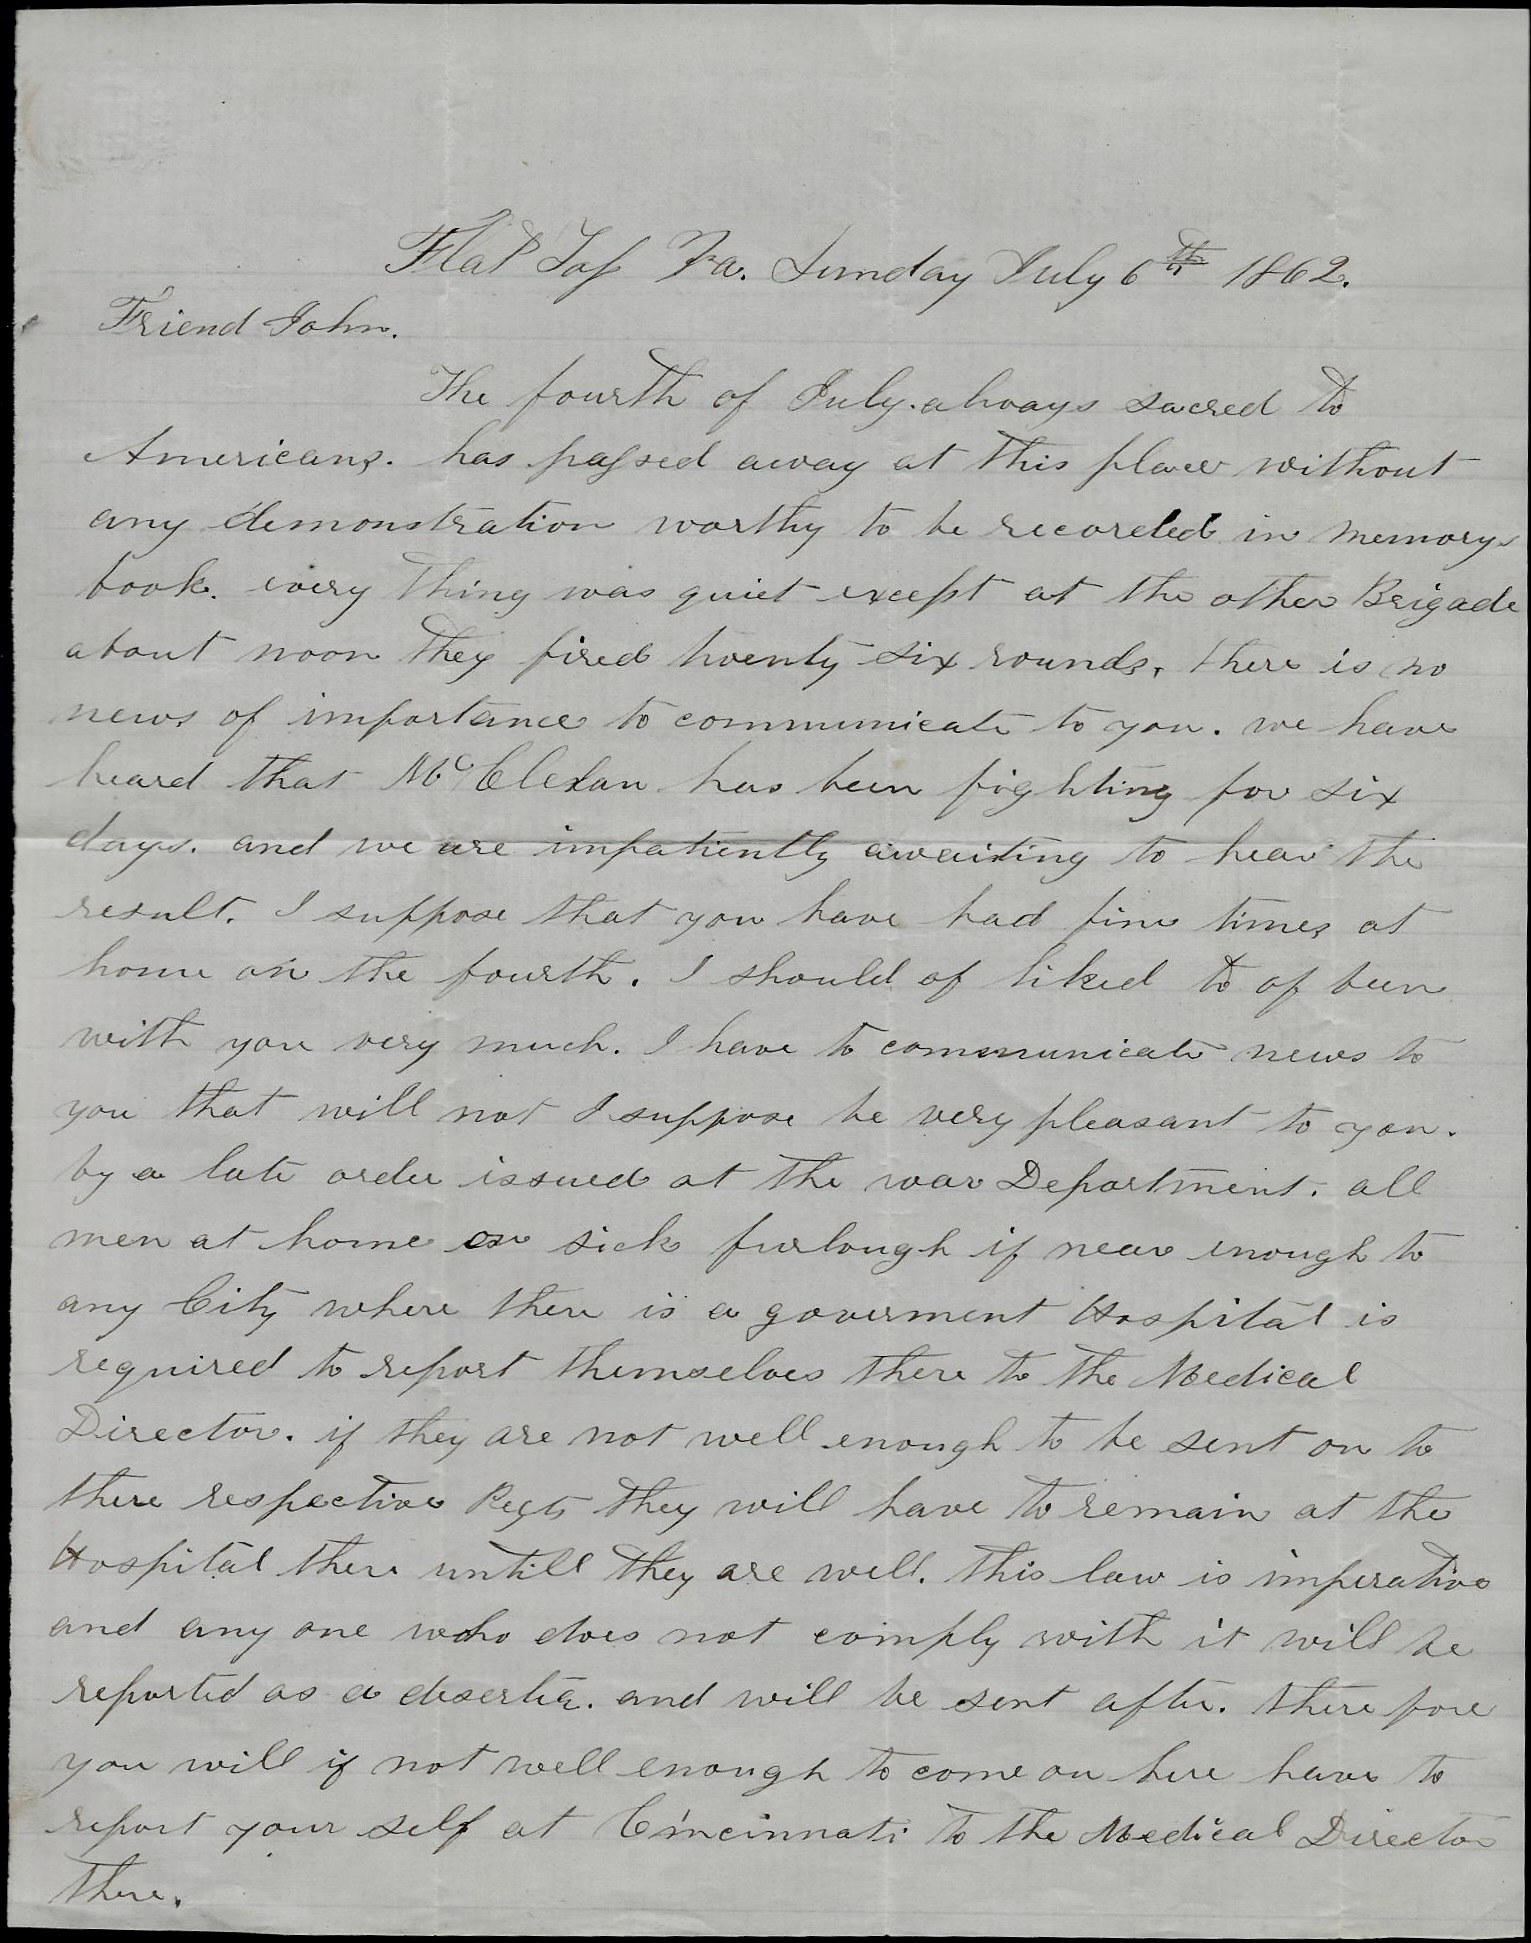 Flat Top Va. Sunday July 6th 1862.
Friend John.
The fourth of July. always sacred to
Americans. has passed away at this place without
any demonstration worthy to be recorded in memorys
book. every thing was quiet except at the other Brigade
about noon they fired twenty six rounds. there is no
news of importance to communicate to you. we have
heard that McClelan has been fighting for six
days. and we are impatiently awaiting to hear the
result. I suppose that you have had fine times at
home on the fourth. I should of liked to of been
with you very much. I have to communicate news to
you that will not I suppose be very pleasant to you.
by a late order issued at the war Department. all
men at home on sick furlough if near enough to
any City where there is a goverment Hospital is
required to report themselves there to the Medical
Director. if they are not well enough to be sent on to
there respective Regts they will have to remain at the
Hospital there untill they are well. this law is imperative
and any one who does not comply with it will be
reported as a deserter. and will be sent after. there fore
you will if not well enough to come on here have to
report your self at Cincinnati to the Medical Director
there.